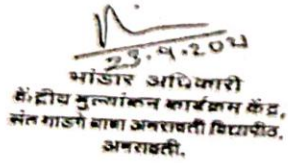 भांडार अधिकारी
केंद्रीय मुल्यांकन कार्यक्रम केंद्र,
संत गाडगे बाबा अमरावती विद्यापीठ,
अमरावती.